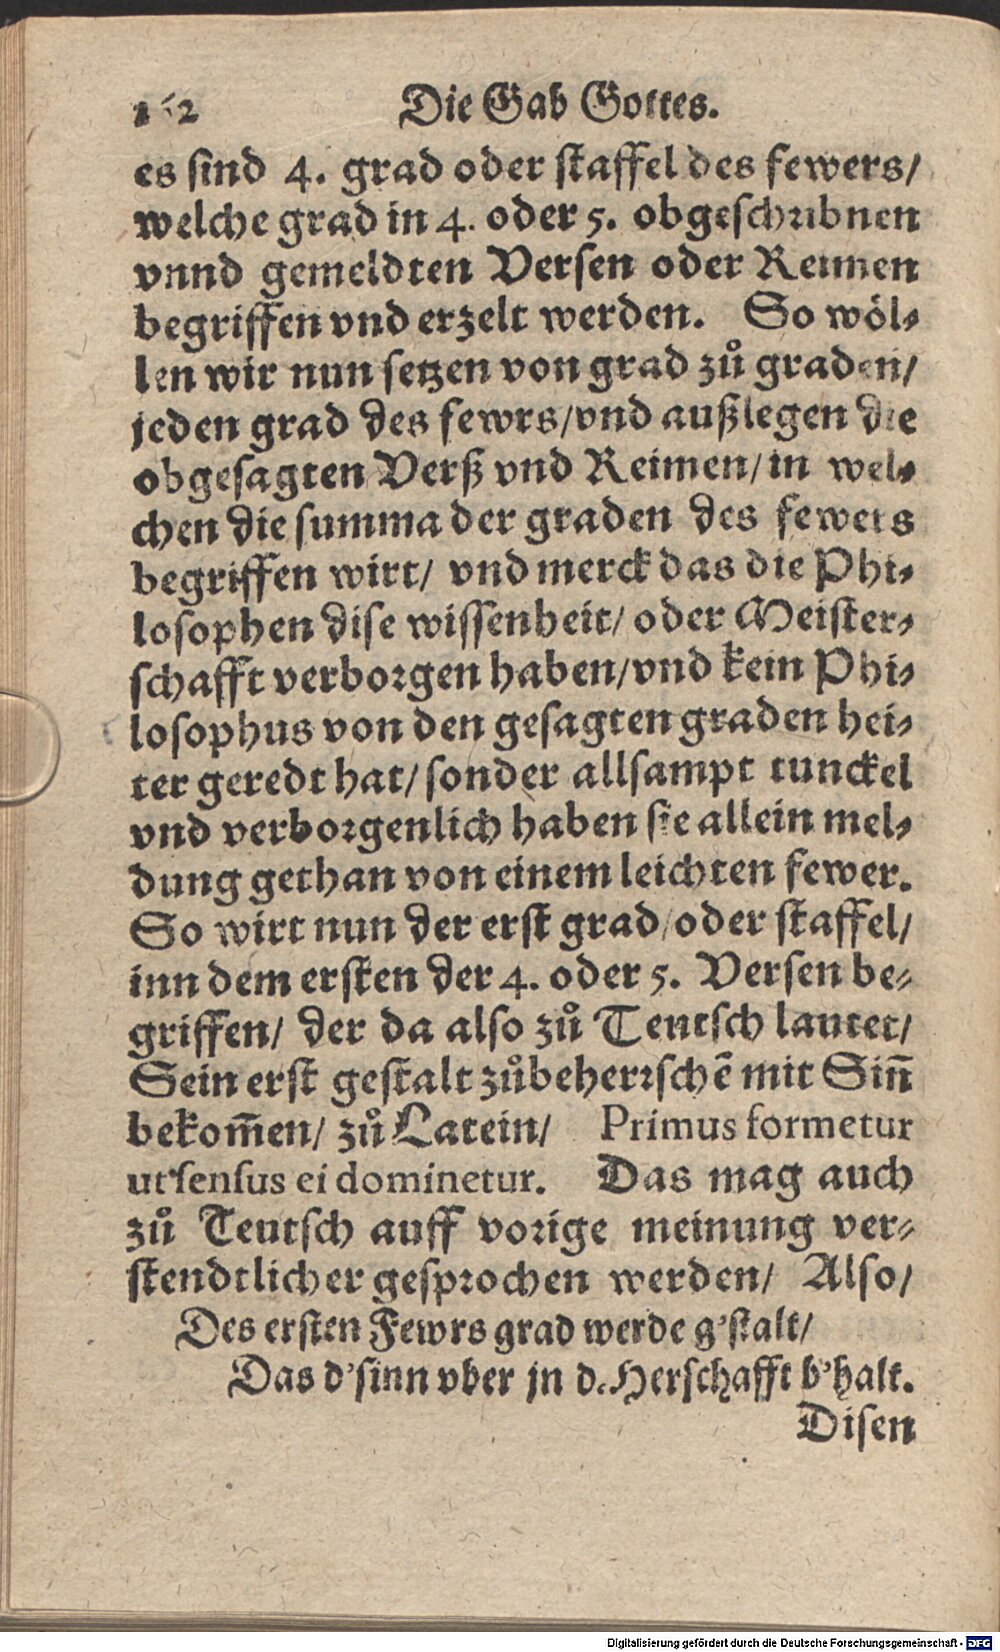 162 Die Gab Gottes.
es sind 4. grad oder staffel des fewers/
welche grad in 4. oder 5. obgeschribnen
vnnd gemeldten Versen oder Reimen
begriffen vnd erzelt werden. So wöl-
len wir nun setzen von grad zů graden/
jeden grad des fewrs/vnd außlegen die
obgesagten Verß vnd Reimen/in wel-
chen die summa der graden des fewers
begriffen wirt/ vnd merck das die Phi-
losophen dise wissenheit/ oder Meister-
schafft verborgen haben/vnd kein Phi-
losophus von den gesagten graden hei-
ter geredt hat/ sonder allsampt tunckel
vnd verborgenlich haben sie allein mel-
dung gethan von einem leichten fewer.
So wirt nun der erst grad/oder staffel/
inn dem ersten der 4. oder 5. Versen be-
griffen/ der da also zů Teutsch lautet/
Sein erst gestalt zůbeherrschē mit Sin̄
bekom̄en/ zů Latein/ Primus formetur
ut sensus ei dominetur. Das mag auch
zů Teutsch auff vorige meinung ver-
stendtlicher gesprochen werden/ Also/
Des ersten Fewrs grad werde g'stalt/
Das d'sinn vber jn d. Herschafft b'halt.
Disen
Digitalisierung gefördert durch die Deutsche Forschungsgemeinschaft - DFG